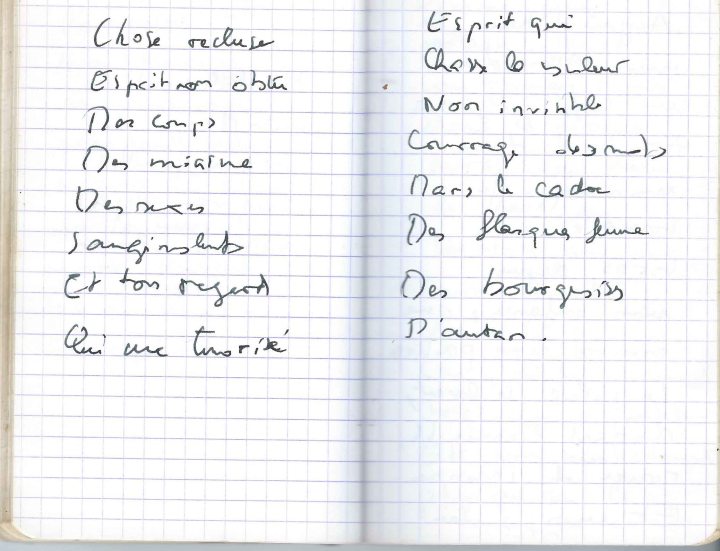 Chose recluse
Esprit non obtu
Des coups
Des
Des sexes
sanginolents
Et ton regard
Qui me
Esprit qui
Chasse la
Non invisible
Courrage des mots
Dans le cadre
Des flasques
Des bourgeoises
D'antan.